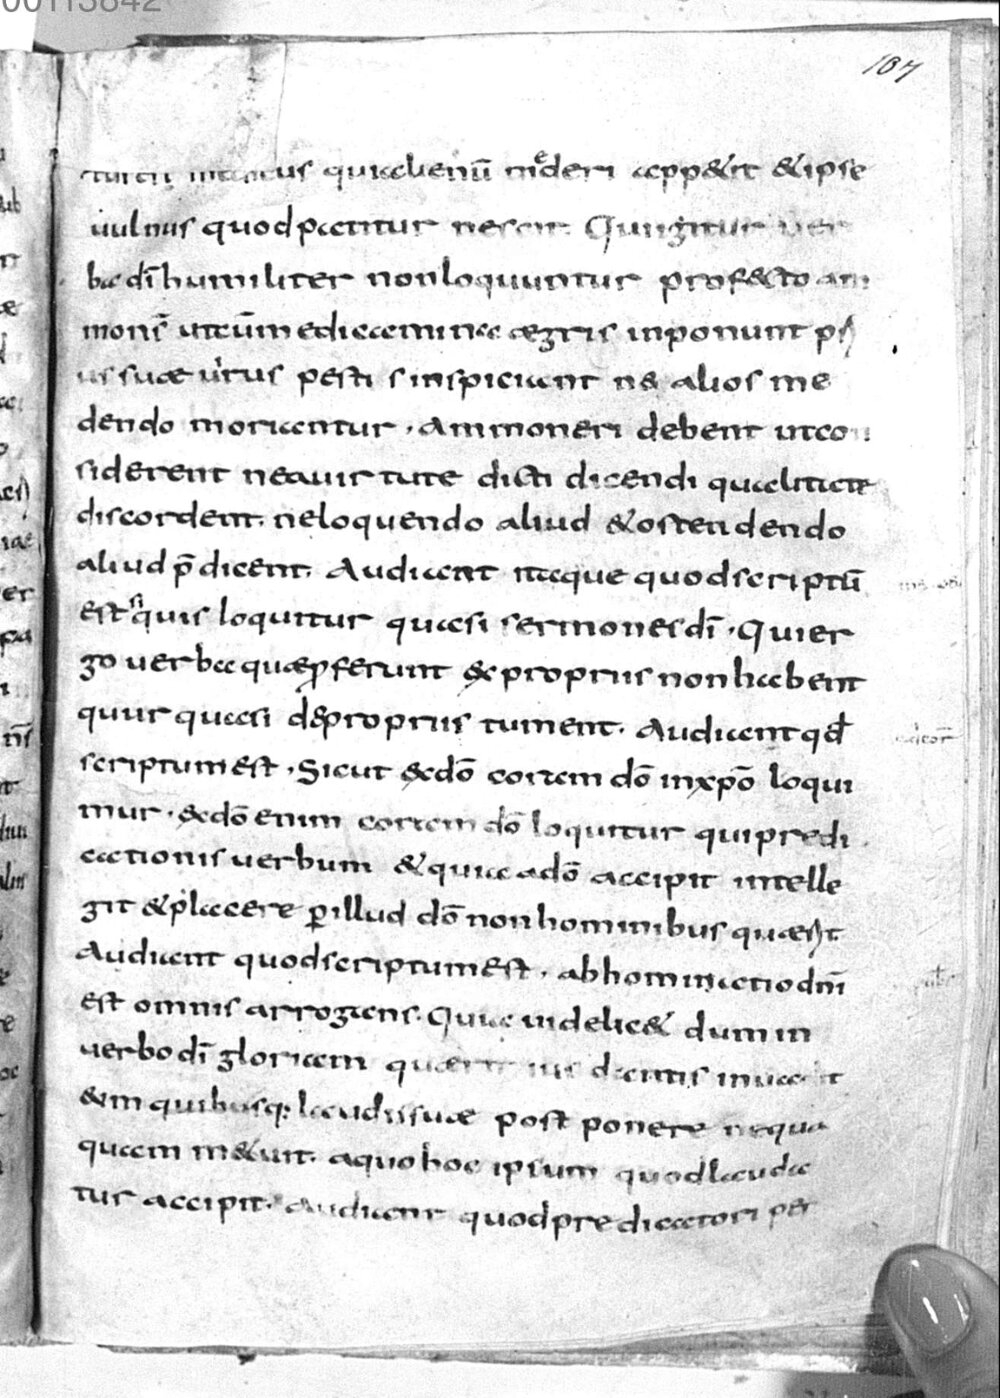 00113842
107
quia alienū mederi app&it & ipse
uulnus quod patitur nescit. Qui igitur uer
ba dī humiliter non loquuntur profecto am
monēs ut cūm edicamina ægris inponunt p
us suæ uirus pesti s inspiciant ne alios me
dendo moriantur. Ammoneri debent ut con
siderent ne a uirtute dicti dicendi qualitate
discordent. ne loquendo aliud & ostendendo
aliud p̄dicent. Audiant itaque quod scriptū
est si quis loquitur quasi sermones dī. Qui er
go uerba quæ pferunt ex propriis non habent
quur quasi de propriis tument. Audiant qđ
scriptum est. Sicut ex dō coram dō in xpō loqui
mur. ex dō enim coram dō loquitur qui predi
cationis uerbum & quia a dō accipit intelle
git & placere p illud dō non hominibus quærit
Audiant quod scriptum est. abhominatio dnī
est omnis arrogans. Quia uidelic& dum in
uerbo dī gloriam dantis
&in quibusq: laudi suæ post ponere nequa
quam m&uit. a quo hoc ipsum quod lauda
tur accipit. Audiant quod predicatori per